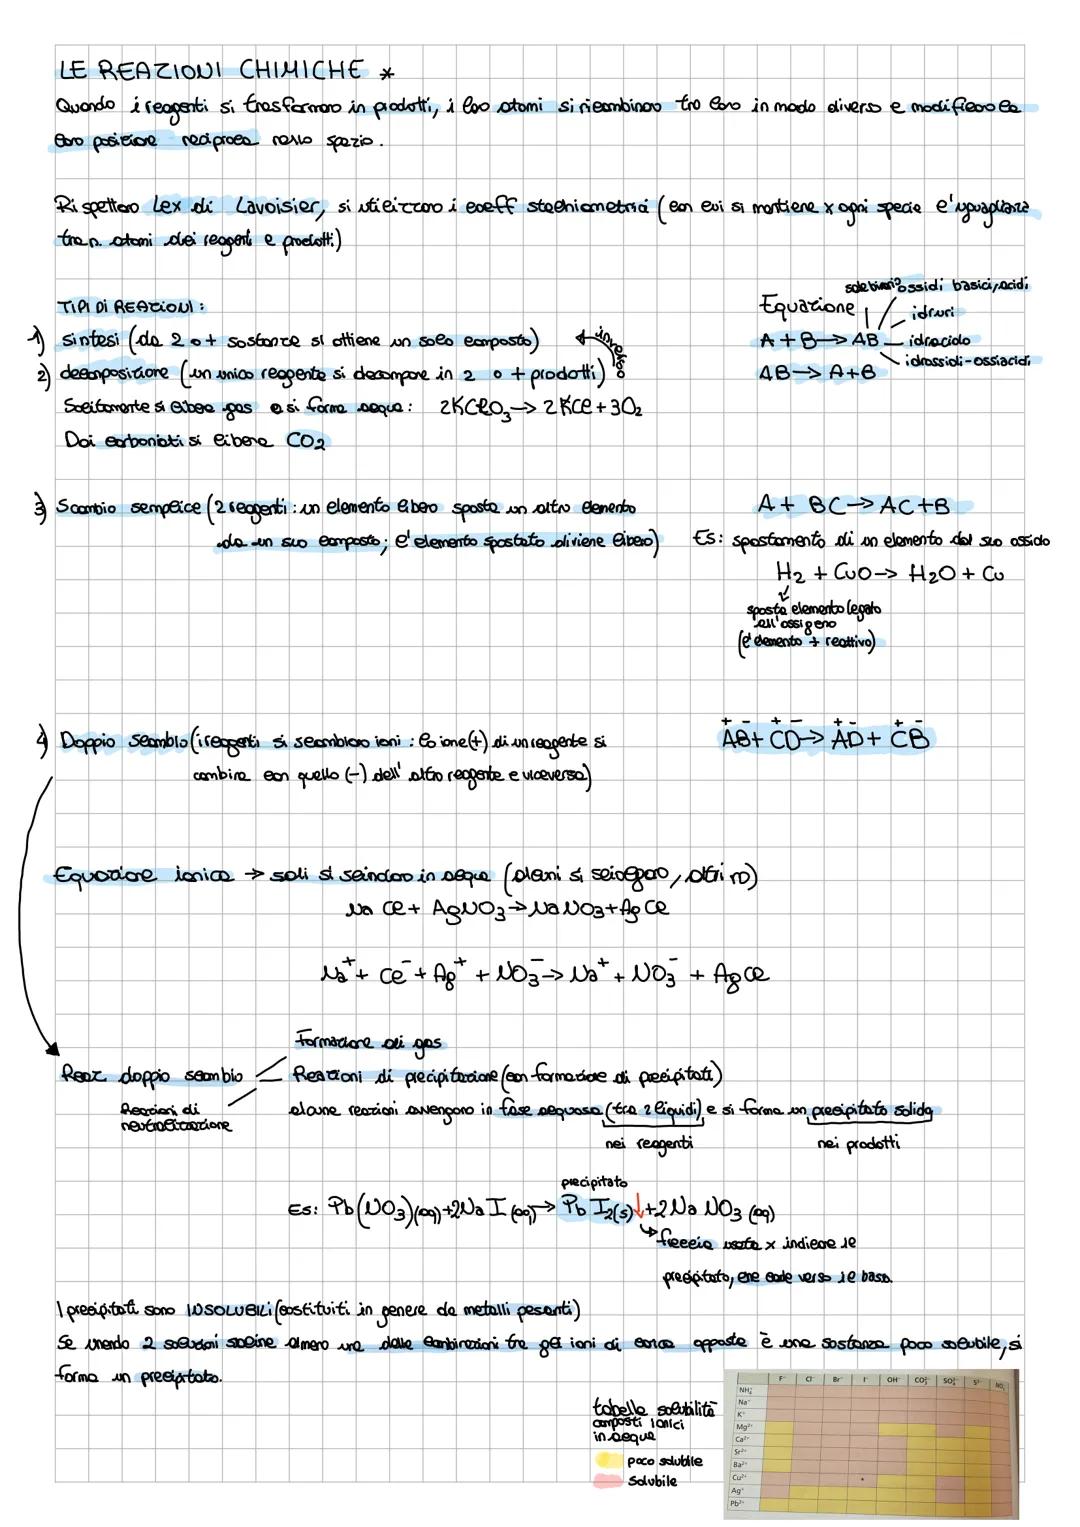 LE REAZIONI CHIMICHE *
Quando i reagenti si trasformano in prodotti, i loro atomi si ricombinano tra loro in modo diverso e modificano la
loro posizione reciproca nello spazio.
Rispettano Lex di Lavoisier, si utilizzano i coeff stechiometrici (con cui si mantiene x ogni specie l'uguaglianza
tra n. atomi dei reagenti e prodotti)
TIPI DI REAZIONI:
1) sintesi (da 2 o + sostanze si ottiene un solo composto)
inverso
2) decomposizione (un unico reagente si decompone in 2 o + prodotti)
Solitamente si libera gas e si forma acqua: 2KClO3 → 2KCl + 3O2
Dai carbonati si libera CO2
Equazione
sale binario
ossidi basici, acidi
idruri
A + B → AB idracido
idrossidi-ossiacidi
AB → A+B
3) Scambio semplice (2 reagenti: un elemento libero sposta un altro elemento
da un suo composto; l'elemento spostato diviene libero)
A + BC → AC+B
Es: spostamento di un elemento dal suo ossido
H2 + CuO → H2O + Cu
sposta elemento legato
all'ossigeno
(l'elemento + reattivo)
4) Doppio scambio (i reagenti si scambiano ioni: lo ione (+) di un reagente si
combina con quello (-) dell'altro reagente e viceversa)
+ - + - + - + -
AB + CD → AD + CB
Equazione ionica → sali si scindono in acqua (alcuni si sciolgono, altri no)
NaCl + AgNO3 → NaNO3 + AgCl
Na+ + Cl- + Ag+ + NO3- → Na+ + NO3- + AgCl
Formazione di gas
Reaz doppio scambio
Reazioni di precipitazione (con formazione di precipitati)
Reazioni di
neutralizzazione
alcune reazioni avvengono in fase acquosa (tra 2 liquidi) e si forma un precipitato solido
nei reagenti
nei prodotti
precipitato
Es: Pb(NO3)(aq) + 2NaI(aq) → PbI2(s)↓ + 2NaNO3(aq)
freccia usata x indicare il
precipitato, che cade verso il basso.
I precipitati sono INSOLUBILI (costituiti in genere da metalli pesanti)
Se unendo 2 soluzioni saline almeno una delle combinazioni tra gli ioni di carica opposta è una sostanza poco solubile, si
forma un precipitato.
tabella solubilità
composti ionici
in acqua
poco solubile
Solubile
F- Cl- Br- I- OH- CO3 2- SO4 2- S2- NO3-
NH4+
Na+
K+
Mg2+
Ca2+
Sr2+
Ba2+
Cu2+
Ag+
Pb2+